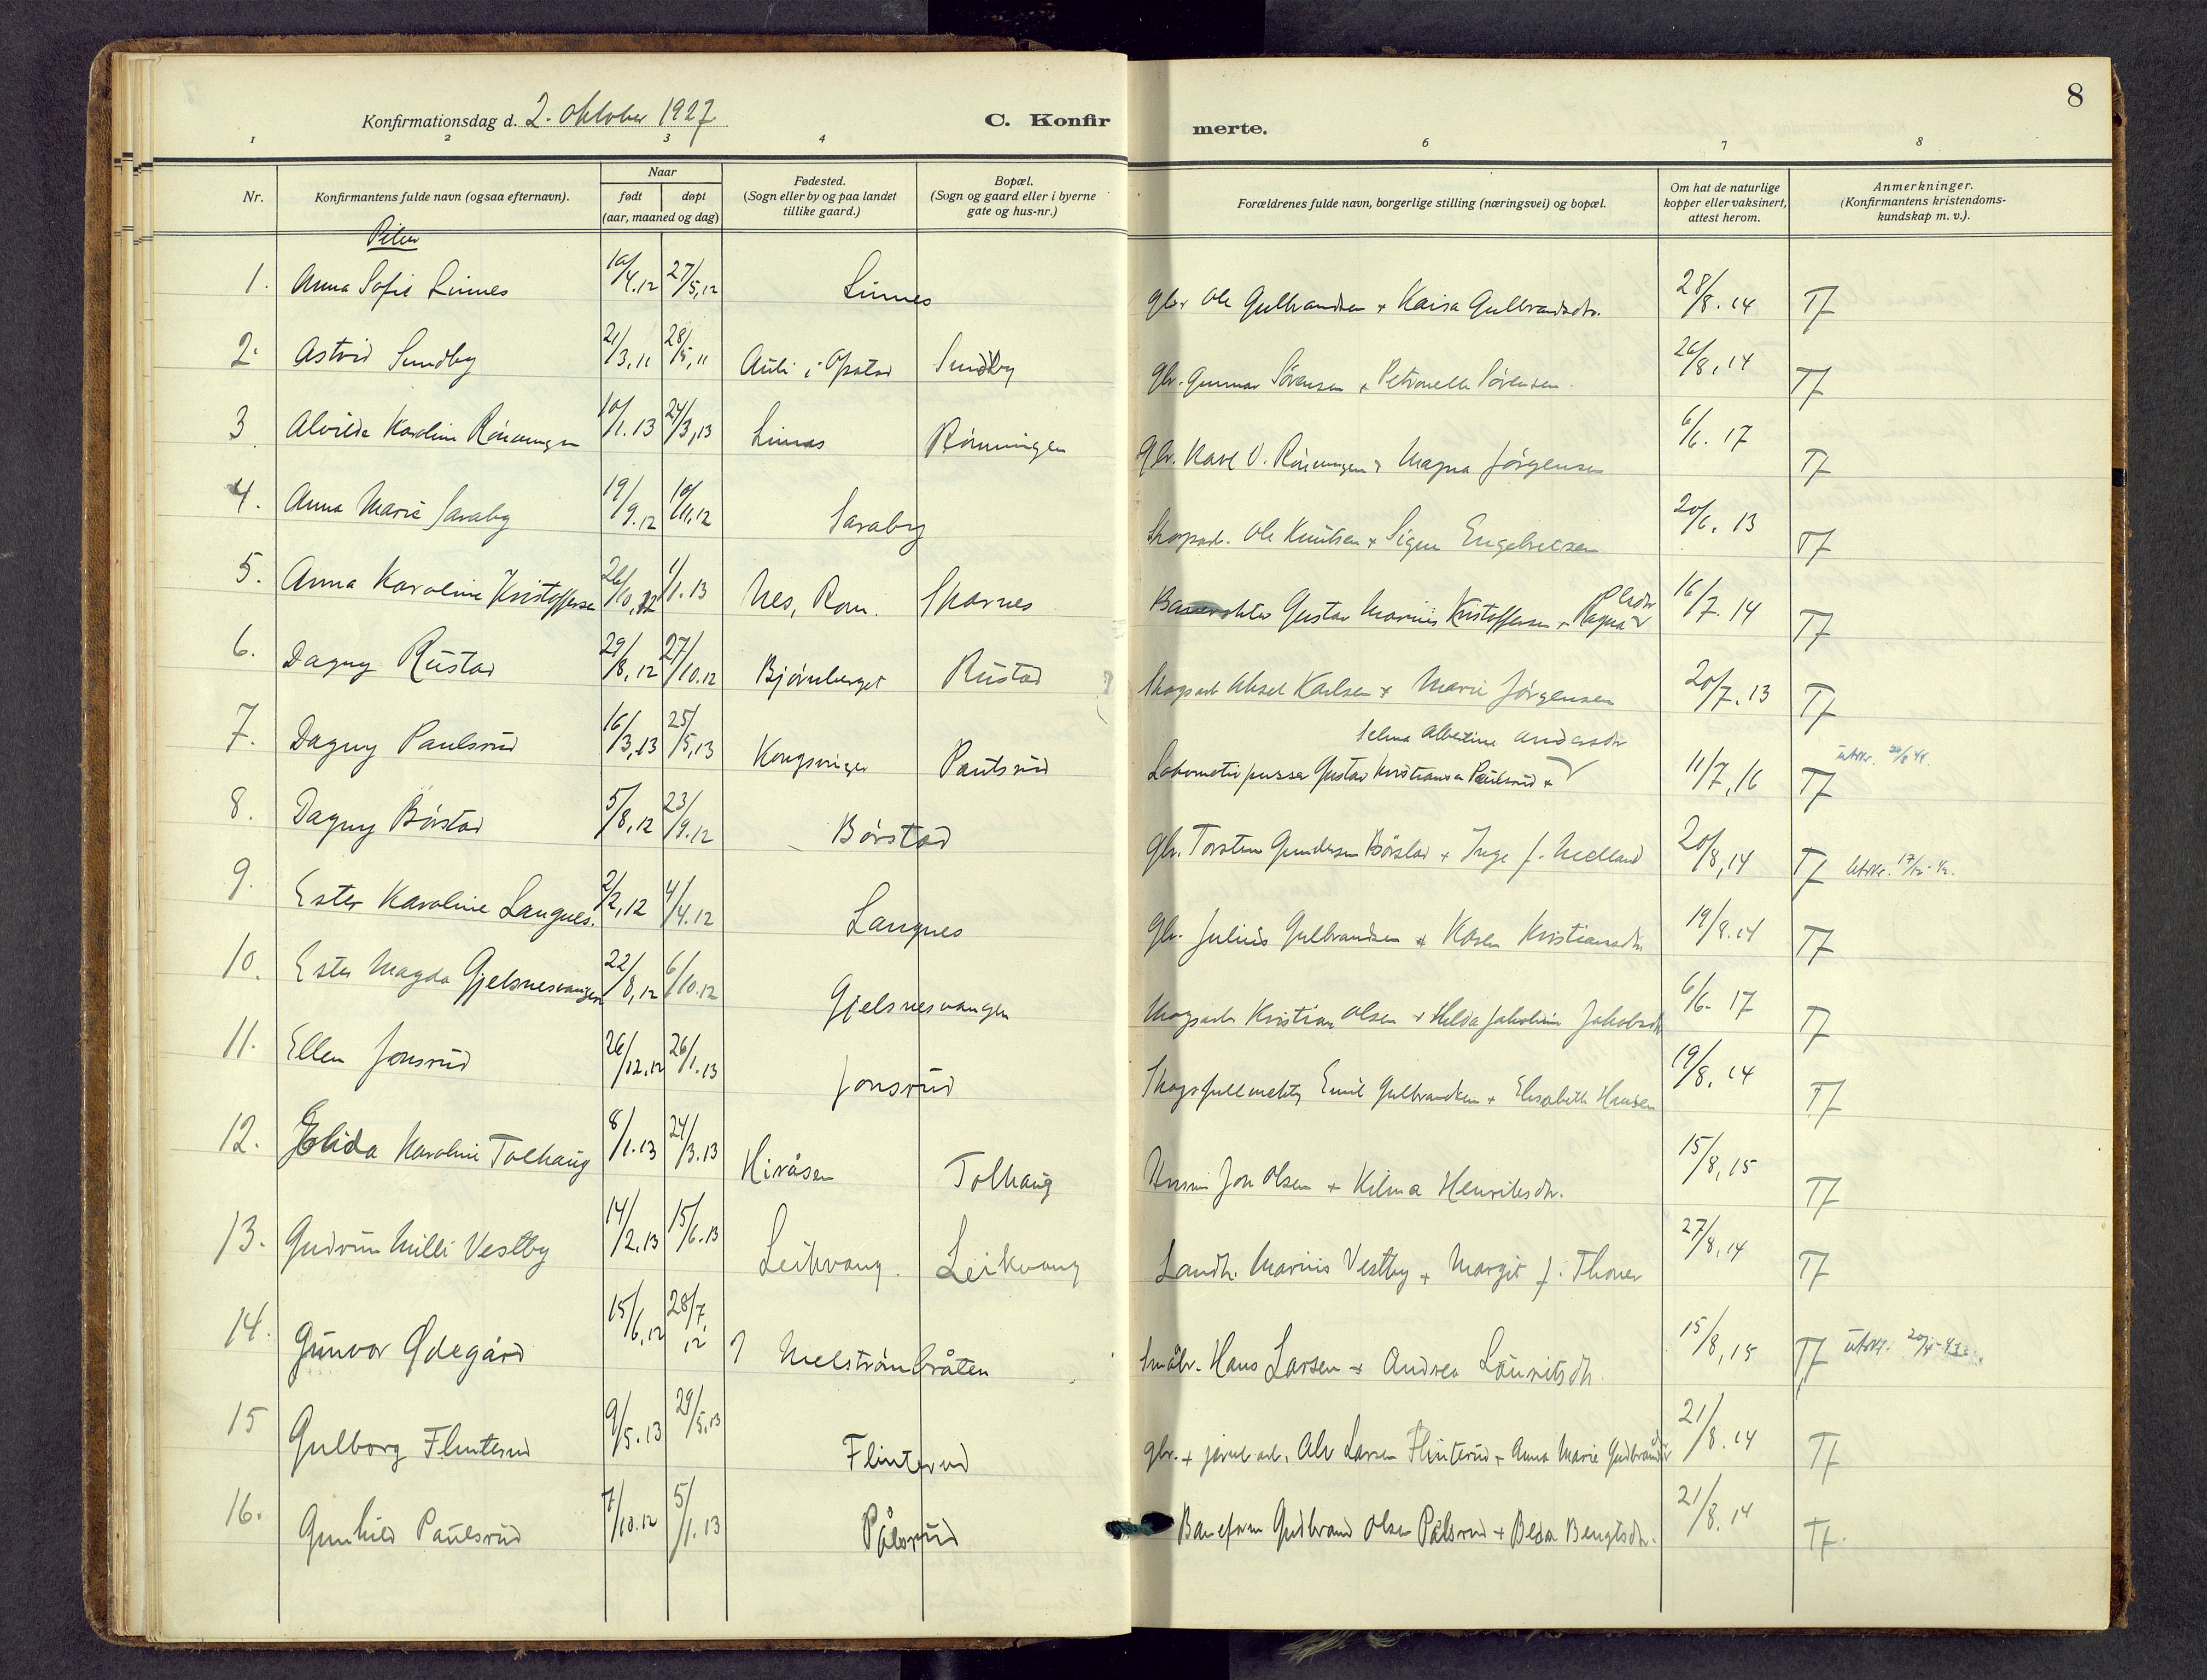 8
Konfirmationsdag d. 2. oktober 1927
C. Konfirmerte.
1 2 3 4 6 7 8
Nr.
Konfirmantens fulde navn (ogsaa efternavn).
Naar
født døpt
(aar, maaned og dag)
Fødested.
(Sogn eller by og paa landet
tillike gaard.)
Bopæl.
(Sogn og gaard eller i byerne
gate og hus-nr.)
Forældrenes fulde navn, borgerlige stilling (næringsvei) og bopæl.
Om hat de naturlige
kopper eller vaksinert,
attest herom.
Anmerkninger.
(Konfirmantens kristendoms-
kundskap m. v.).
Piker
1. Anna Sofie Linnes 10/4.12 27/5.12 Linnes gbr. Ole Gulbrandsen + Kaisa Gulbrandsdtr. 28/8.14 Tf
2. Astrid Sundby 21/3.11 28/5.11 Auli i Opstad Sundby gbr. Gunnar Sörensen + Petronelle Sörensen. 26/8.14 Tf
3 Alvilde Karoline Rönningen 10/1.13 24/3.13 Linnes Rönningen gbr. Karl O. Rönningen + Magna Jörgensen 6/6.17 Tf
4. Anna Marie Saraby 19/9.12 10/11.12 Saraby Skogsarb. Ole Knutsen + Signe Engebretsen 20/6.13 Tf
5. Anna Karoline Kristoffersen 26/10.12 1/1.13 Nes, Rom. Skarnes Gustav Marius Kristoffersen + Ragna 16/7.14 Tf
6. Dagny Rustad 29/8.12 27/10.12 Björneberget Rustad Skogsarb Aksel Karlsen + Marie Jörgensen 20/7.13 Tf
7. Dagny Paulsrud 16/3.13 25/5.13 Kongsvinger Paulsrud Lokomotivpusser Gustav Kristiansen Paulsrud + Selma Albertine Andersdtr 11/7.16 Tf utskr.
8. Dagny Börstad 5/8.12 23/9.12 Börstad gbr. Torsten Gundersen Börstad + Inge f. Melland 20/8.14 Tf utskr.
9. Ester Karoline Langnes. 2/2.12 4/4.12 Langnes gbr. Julius Gulbrandsen + Karen Kristiansdtr 19/8.14 Tf
10. Ester Magda Gjelsnesvangen 22/8.12 6/10.12 Gjelsnesvangen Skogsarb Kristian Olsen + Hilda Jakobine Jakobsdtr 6/6.17 Tf
11. Ellen Jonsrud 26/12.12 26/1.13 Jonsrud Skogsfullmektig Emil Gulbrandsen + Elisabeth Hansen 19/8.14 Tf
12. Elida Karoline Tolhaug 8/1.13 24/3.13 Hiråsen Tolhaug Jon Olsen + Kilma Henriksdtr. 15/8.15 Tf
13. Gudrun Milli Vestby 14/2.13 15/6.13 Leikvang. Leikvang Landh. Marius Vestby + Margit f. Thoner 27/8.14 Tf
14. Gunvor Ødegård 15/6.12 28/7.12 ? Melströmbråten Småbr. Hans Larsen + Andrea Lauritsdtr 15/8.15 Tf utskr.
15 Gulborg Flinterud 9/5.13 29/5.13 Flinterud gbr. + jernb.arb. Alv Larsen Flinterud + Anna Marie Gudbrandsdtr 21/8.14 Tf
16. Gunhild Paulsrud 7/10.12 5/1.13 Pålsrud Baneform Gudbrand Olsen Pålsrud + Beda Bengtsdtr. 21/8.14 Tf.